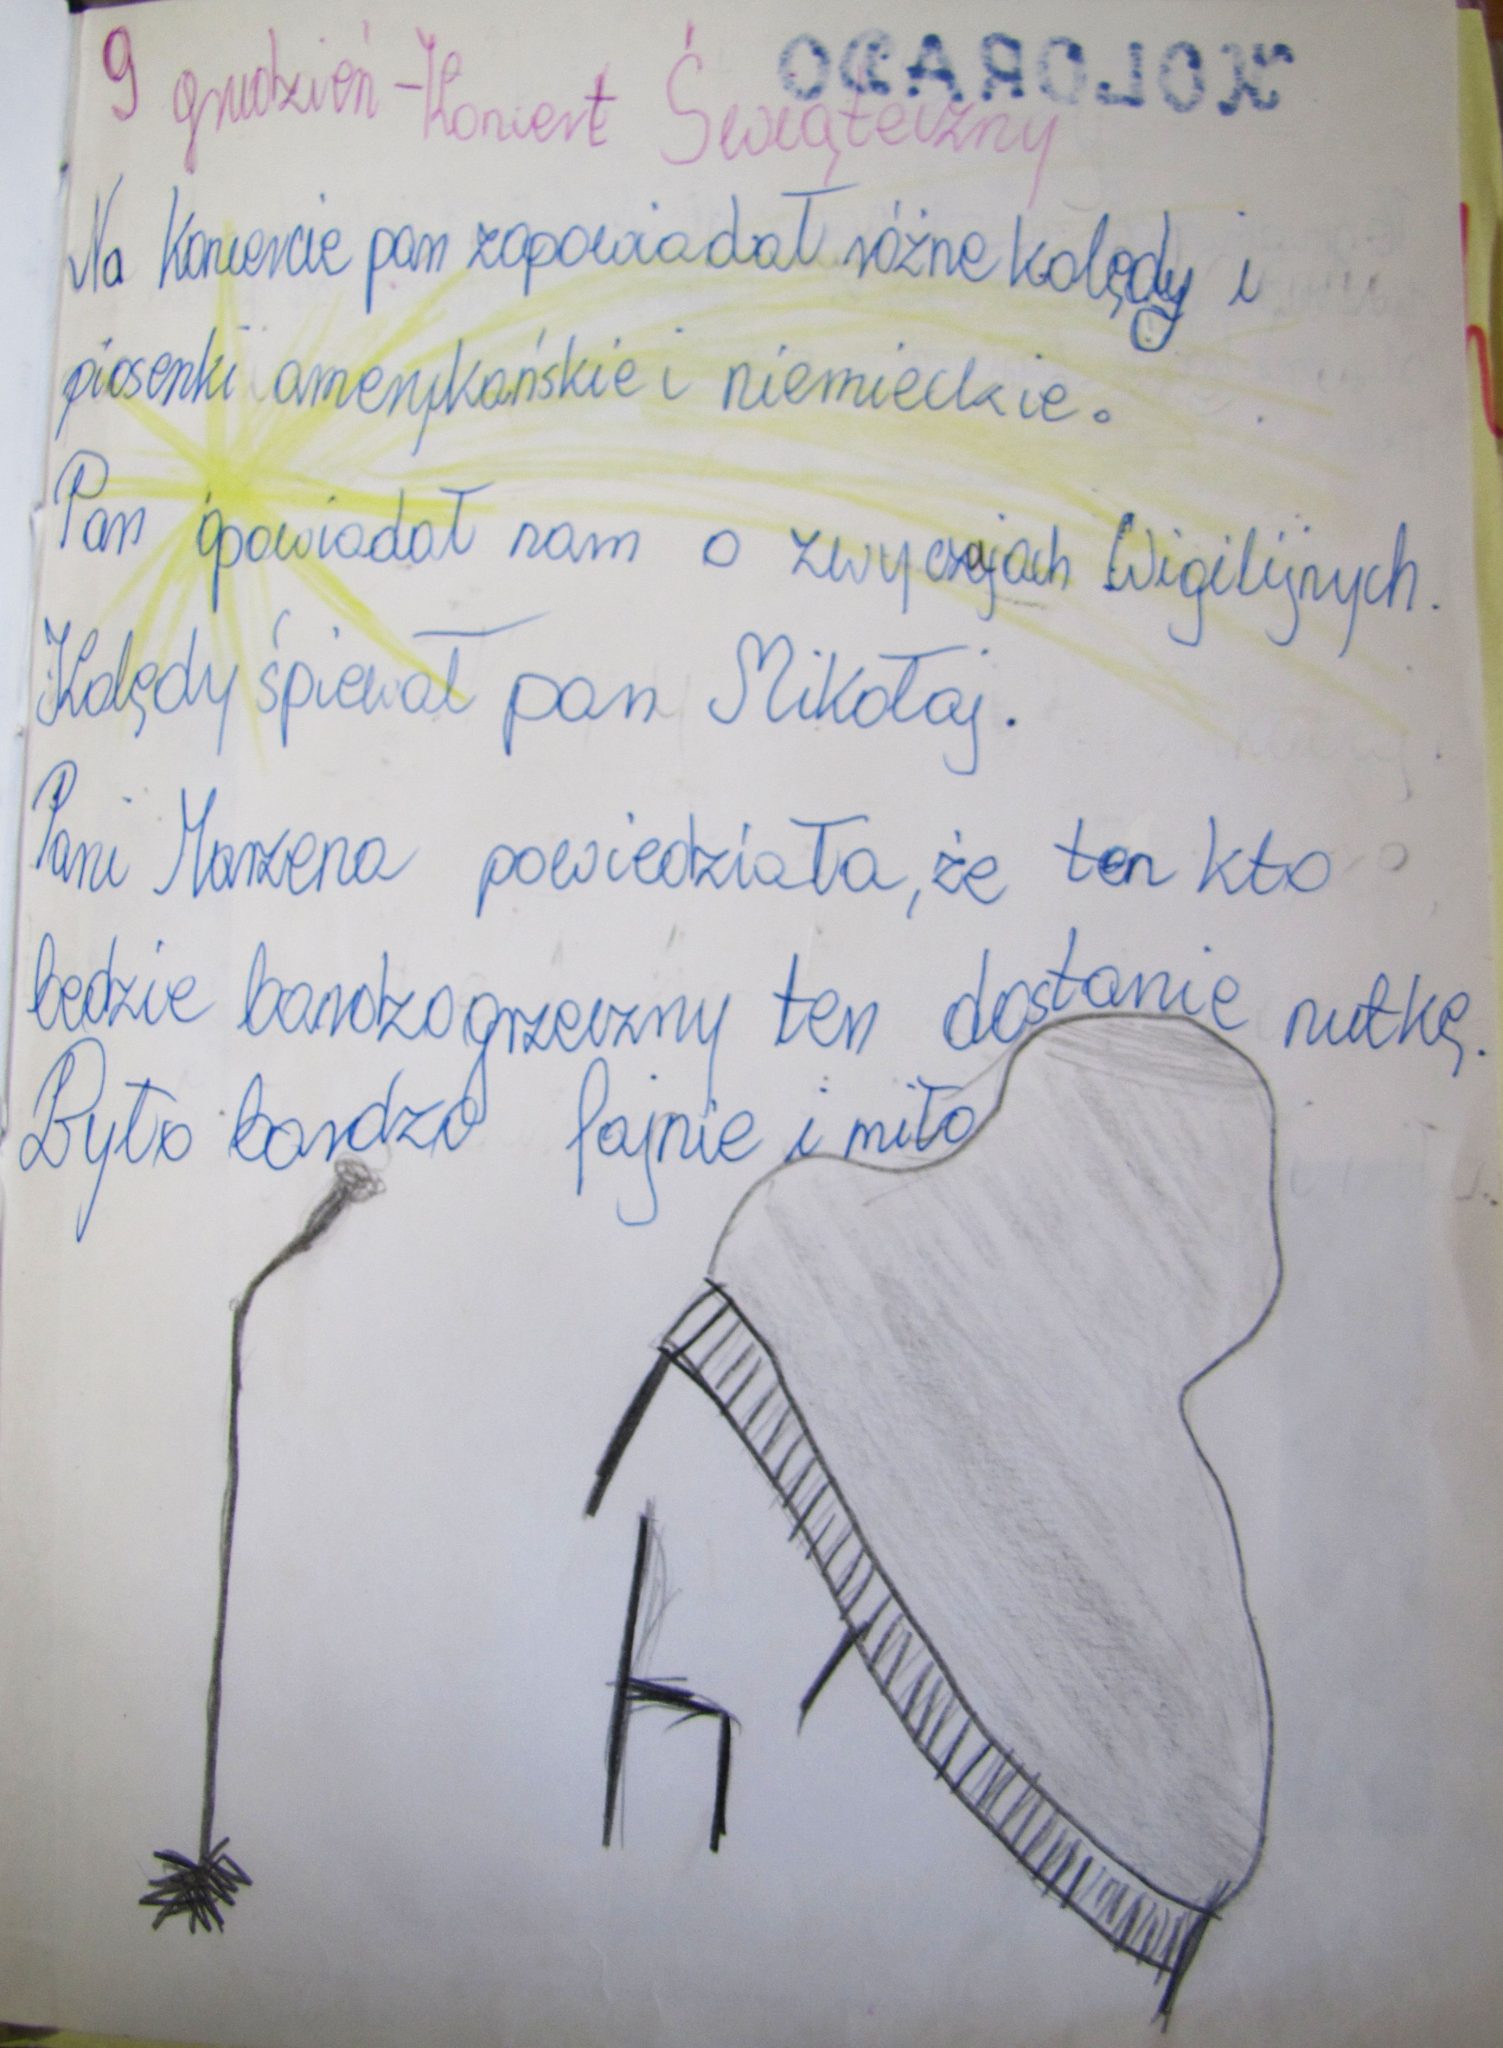 9 grudzień - Koncert Świąteczny
Na koncercie pan zapowiadał różne kolędy i
piosenki amerykańskie i niemieckie.
Pan opowiadał nam o zwyczajach Wigilijnych.
Kolędy śpiewał pan Mikołaj.
Pani Marzena powiedziała, że ten kto
będzie bardzo grzeczny ten dostanie nutkę.
Było bardzo fajnie i miło